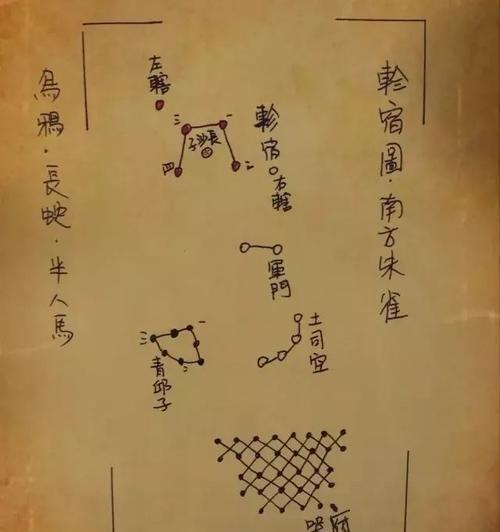 軫宿圖·南方朱雀
烏鴉·長蛇·半人馬
左轄
軫宿
一
二
三
四
長沙
子
右轄
軍門
土司空
青邱子
一
二
三
器府